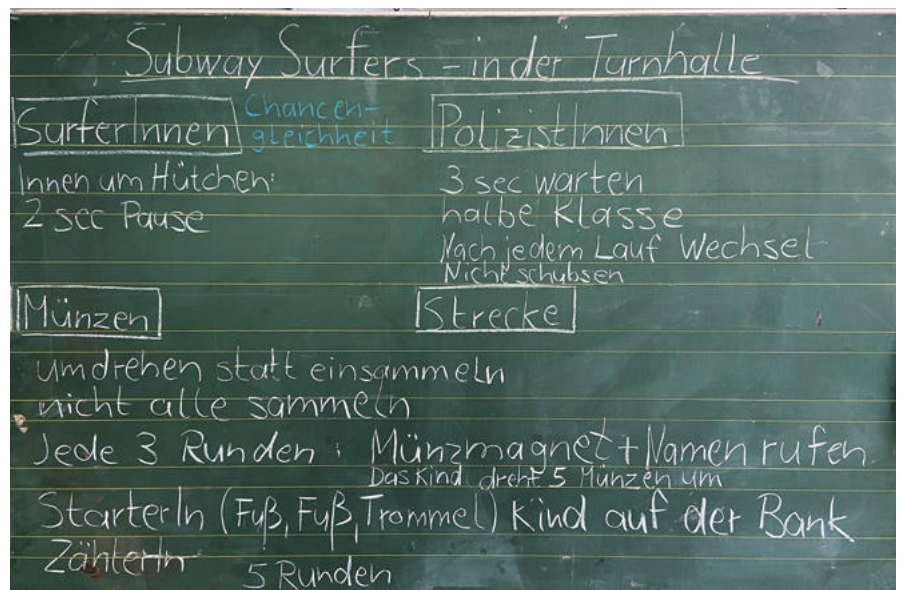 Subway Surfers - in der Turnhalle
SurferInnen
Chancen-
gleichheit
Innen um Hütchen:
2 sec Pause
PolizistInnen
3 sec warten
halbe Klasse
Nach jedem Lauf Wechsel
Nicht schubsen
Münzen
Strecke
umdrehen statt einsammeln
nicht alle sammeln
Jede 3 Runden : Münzmagnet + Namen rufen
Das Kind dreht 5 Münzen um
StarterIn (Fuß, Fuß, Trommel) Kind auf der Bank
ZählerIn
5 Runden